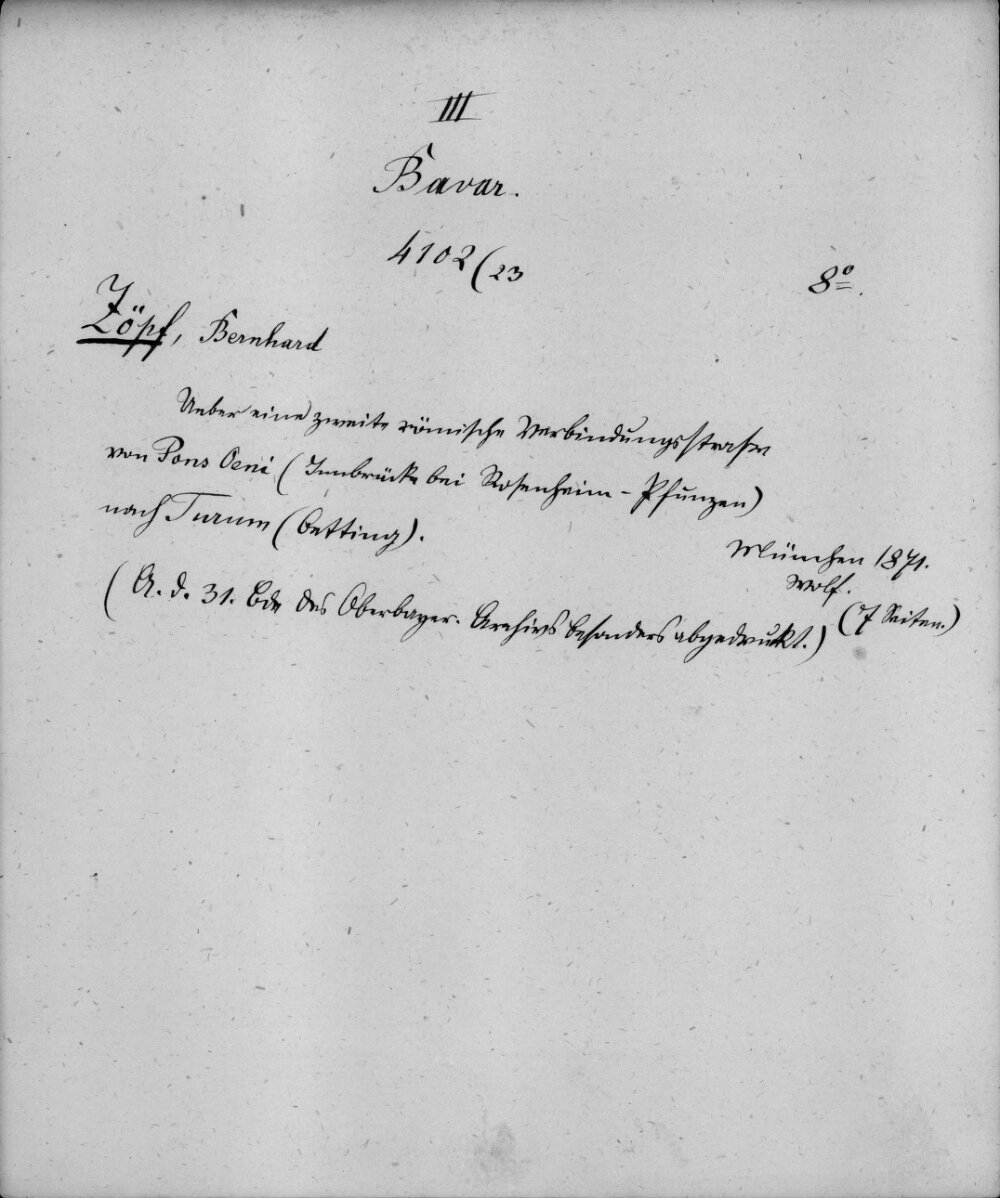 III
Bavar.
4102(23
8º.
Zöpf, Bernhard
Ueber eine zweite römische Verbindungsstraße
von Pons Oeni (Innbrücke bei Rosenheim - Pfunzen)
nach Turum (Oetting).
München 1871.
Wolf.
(7 Seiten.)
(A. d. 31. Bde des Oberbayer. Archivs besonders abgedruckt.)